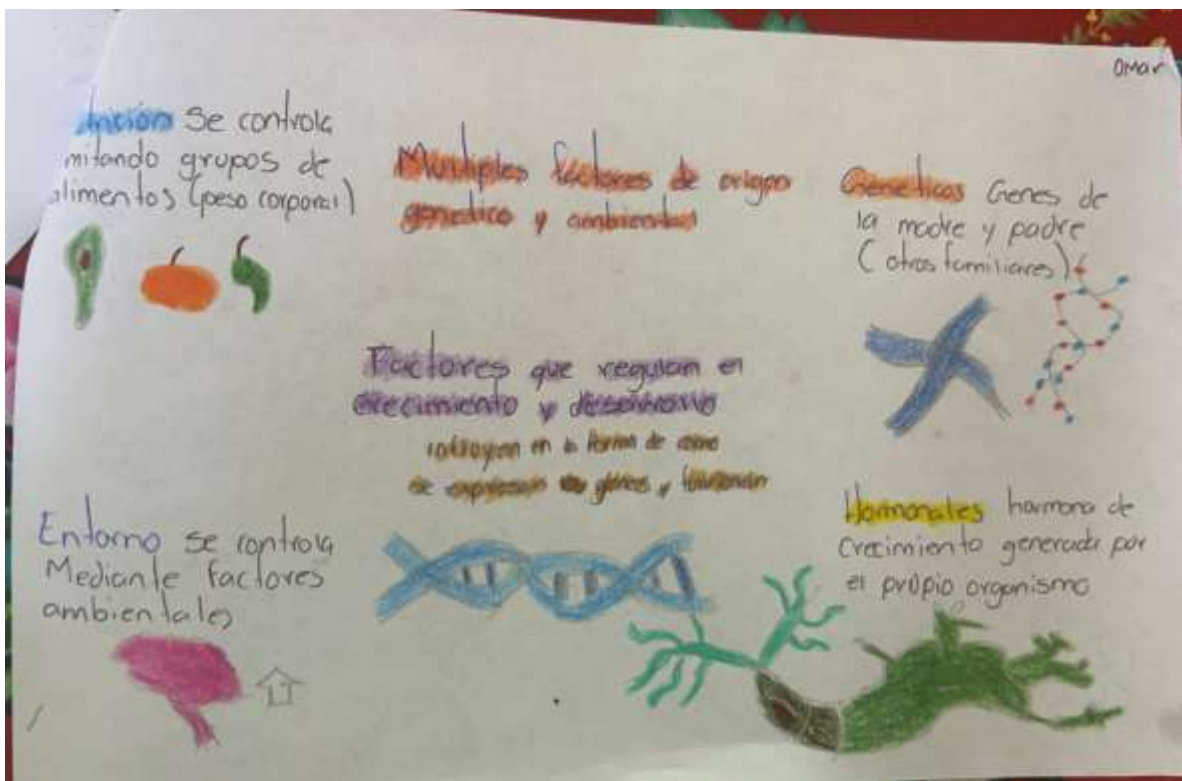 Omar
Se controla
mitando grupos de
alimentos (peso corporal)
Multiples factores de origen
genetico y ambiental
Geneticos Genes de
la madre y padre
(otros familiares)
Factores que regulan el
crecimiento y desarrollo
influyen en la forma de como
se expresan los genes y
Entorno se controla
Mediante factores
ambientales
Hormonales hormona de
crecimiento generada por
el propio organismo